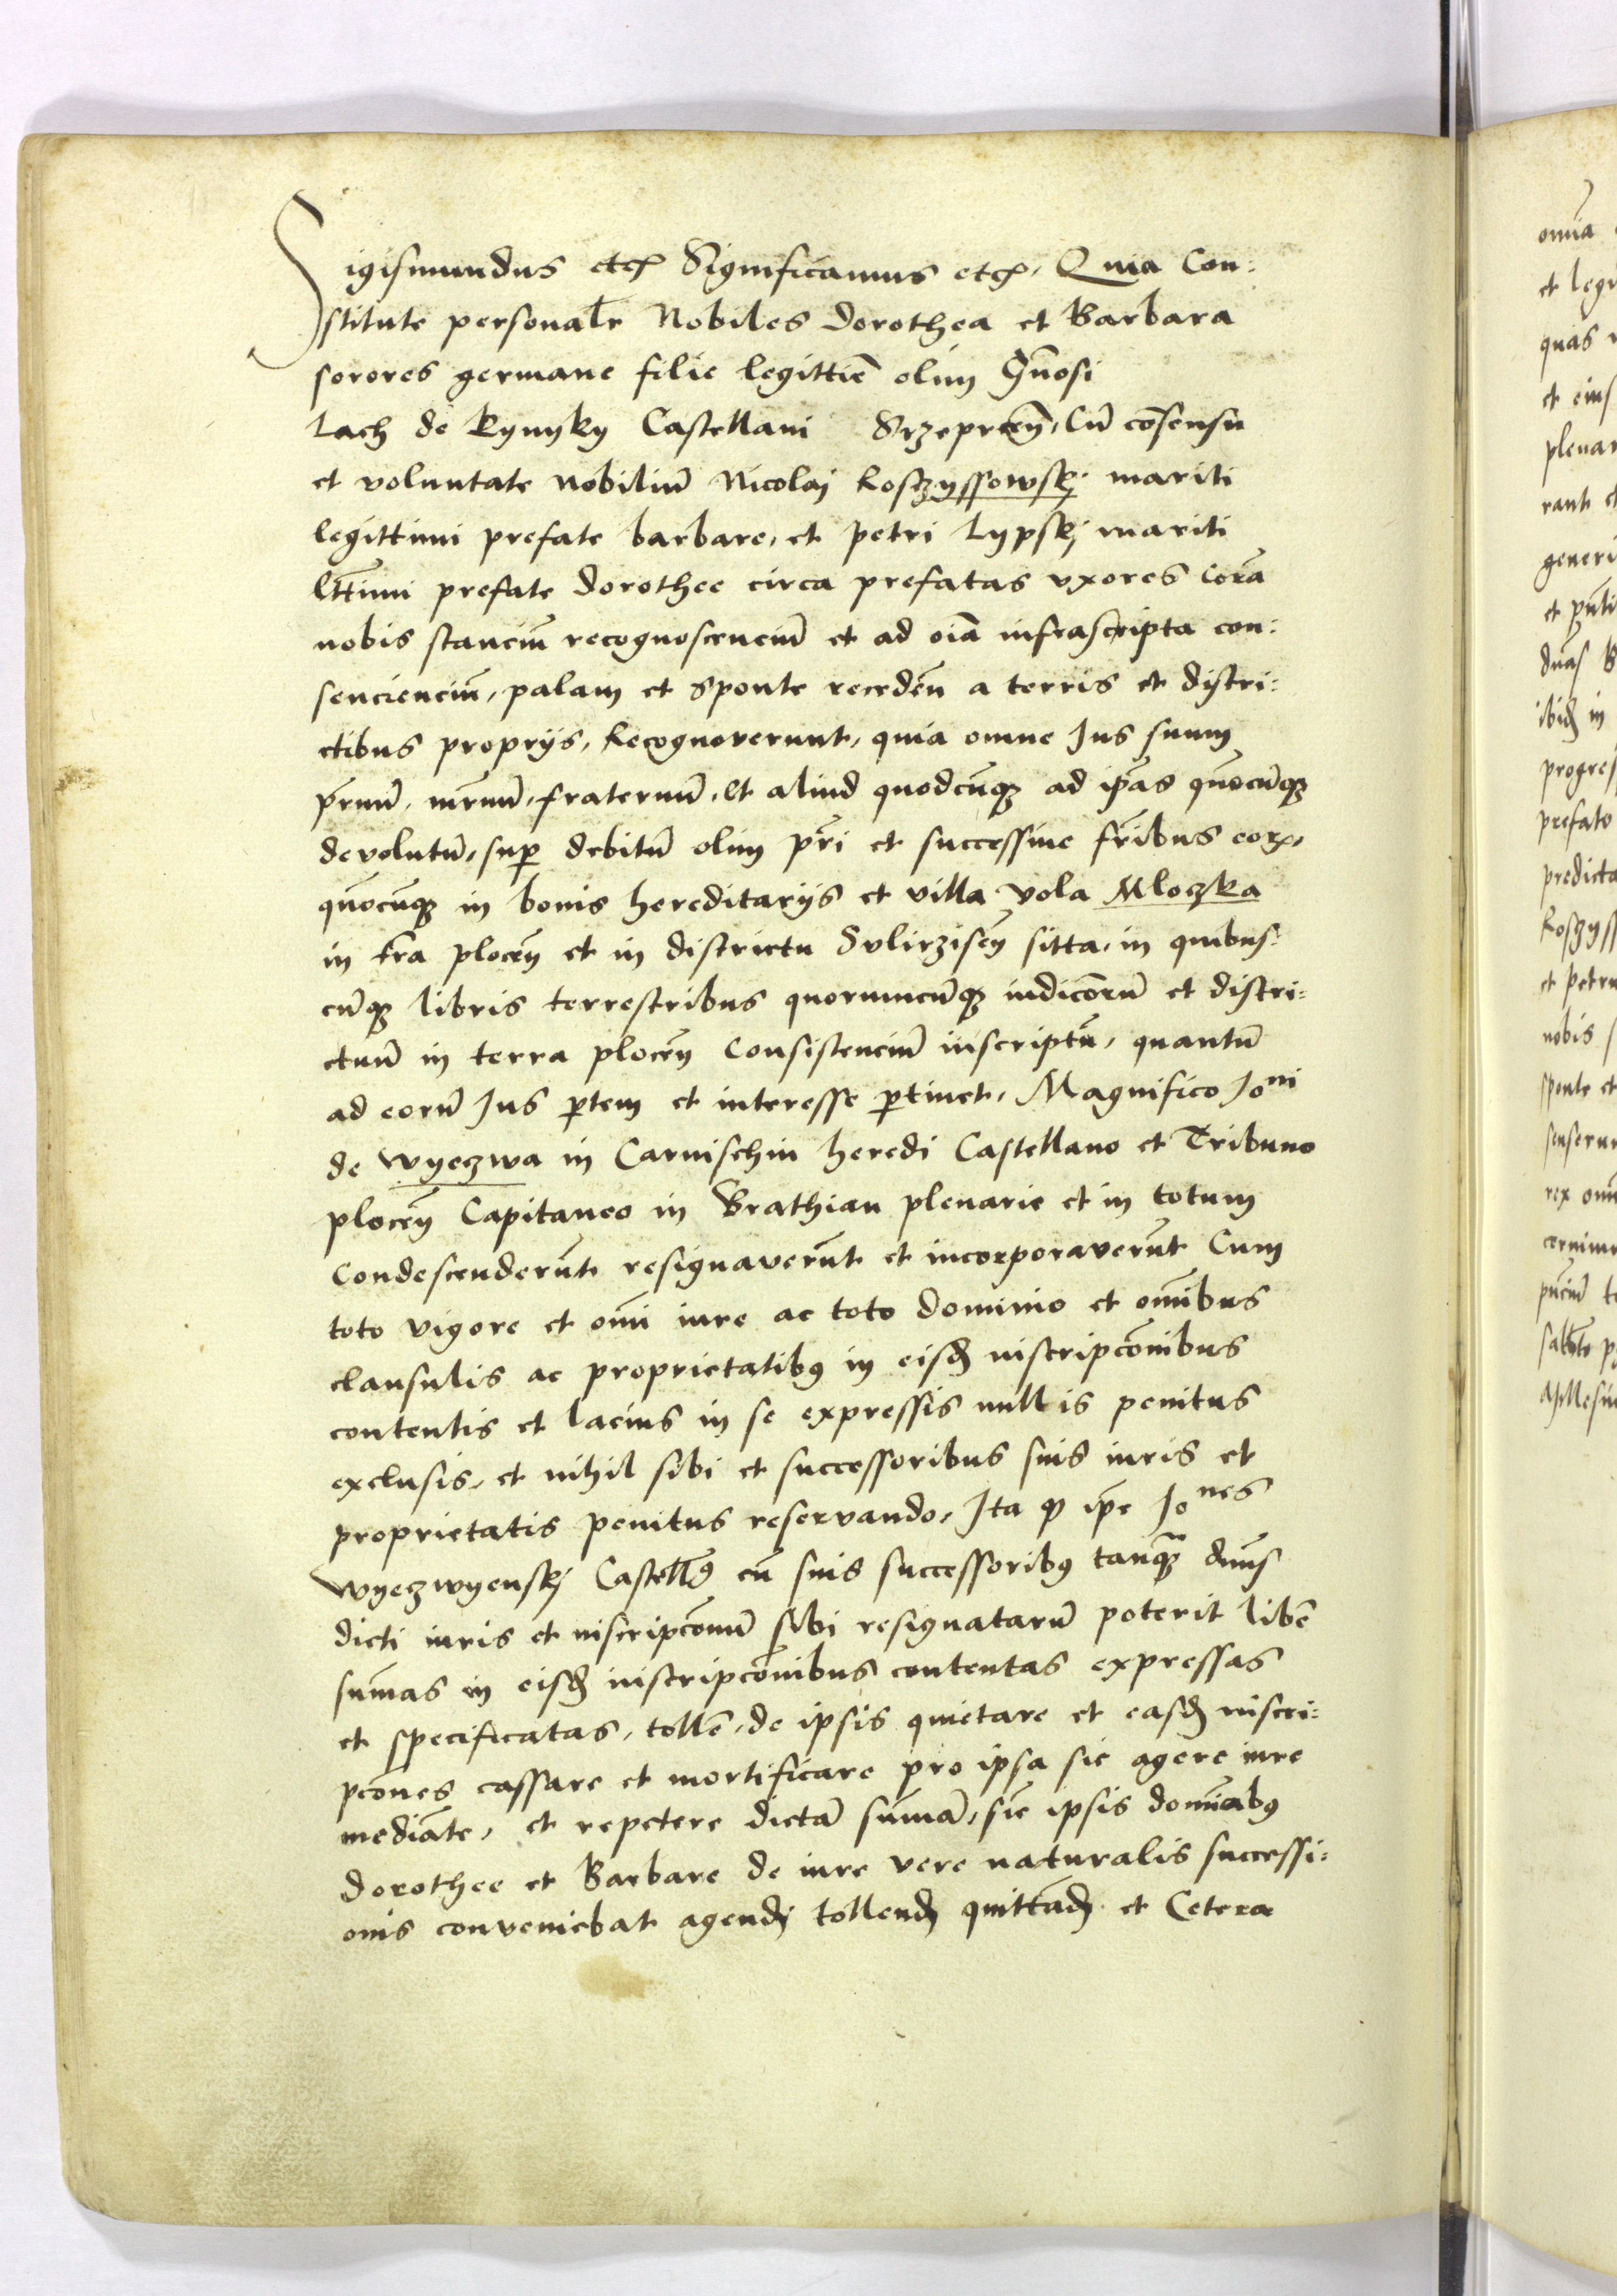 Sigismundus etc Significamus etc, Quia Con:
stitute personalr Nobiles Dorothea et Barbara
sorores germane filie legittie olim Gnosi
Lach de Kynyky Castellani Srzeprceñ, Cu consensu
et voluntate nobiliu Nicolaj Kosczyssowskj mariti
legittimi prefate barbare, et petri Lypskj mariti
lttimi prefate dorothee circa prefatas uxores cora
nobis stanciu recognosceneciu et ad oia infrascripta con:
senciencium, palam et sponte receden a terris et distri:
ctibus proprijs, Recognoverunt, quia omne Jus suum
prnu, mrnu, fraternu, et aliud quodcuqz ad ipas quocuqz
devolutu, sup debitu olim pri et successive fribus eorx,
quocuqz in bonis hereditarijs et villa vola Mloczka
in tra ploceñ et in districtu Svlirziseñ sitta, in quibus:
cuqz libris terrestribus quorumcuqz iudicoru et distri:
ctuu in terra ploceñ Consistenciu inscriptu, quantu
ad eoru Jus ptem et interesse ptinet, Magnifico Joni
de Wyeczwa in Carnischin heredi Castellano et Tribuno
ploceñ Capitaneo in Brathian plenarie et in totum
Condescenderut resignaverut et incorporaverut Cum
toto vigore et omi iure ac toto dominio et omibus
clausulis ac proprietatibus in eisd inscripconibus
contentis et lacius in se expressis nullis penitus
exclusis, et nihil sibi et successoribus suis iuris et
proprietatis penitus reservando, Ita q ipe Jones
Wyeczwyenskj Castell9 cu suis successorib9 tanqz dnus
dicti iuris et inscripconu sibi resignataru poterit libe
sumas in eisd inscripconibus contentas expressas
et specificatas, tolle, de ipsis quietare et easd inscri:
pcones cassare et mortificare pro ipsa sic agere iure
mediate, et repetere dicta suma, sic ipsis domiab9
Dorothee et Barbare de iure vere naturalis successi:
onis conveniebat agendj tollendj quittadj et Cetera